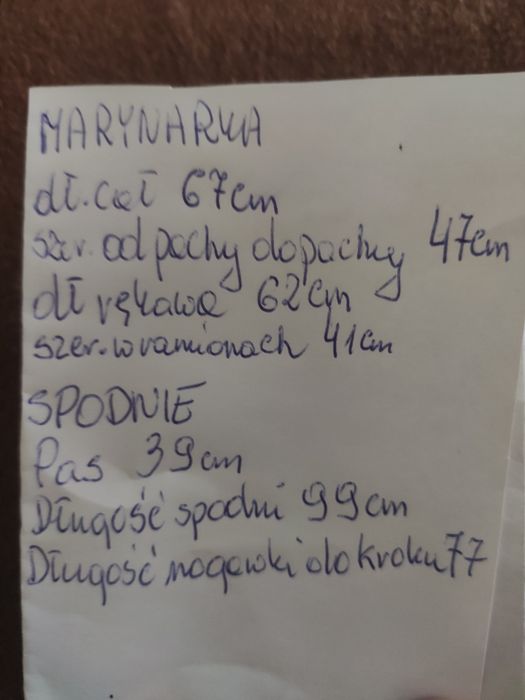 MARYNARKA
dł. cał 67cm
szer. od pachy do pachy 47cm
dł rękawa 62cm
szer. w ramionach 41cm
SPODNIE
Pas 39cm
Długość spodni 99cm
Długość nogawki do kroku 77